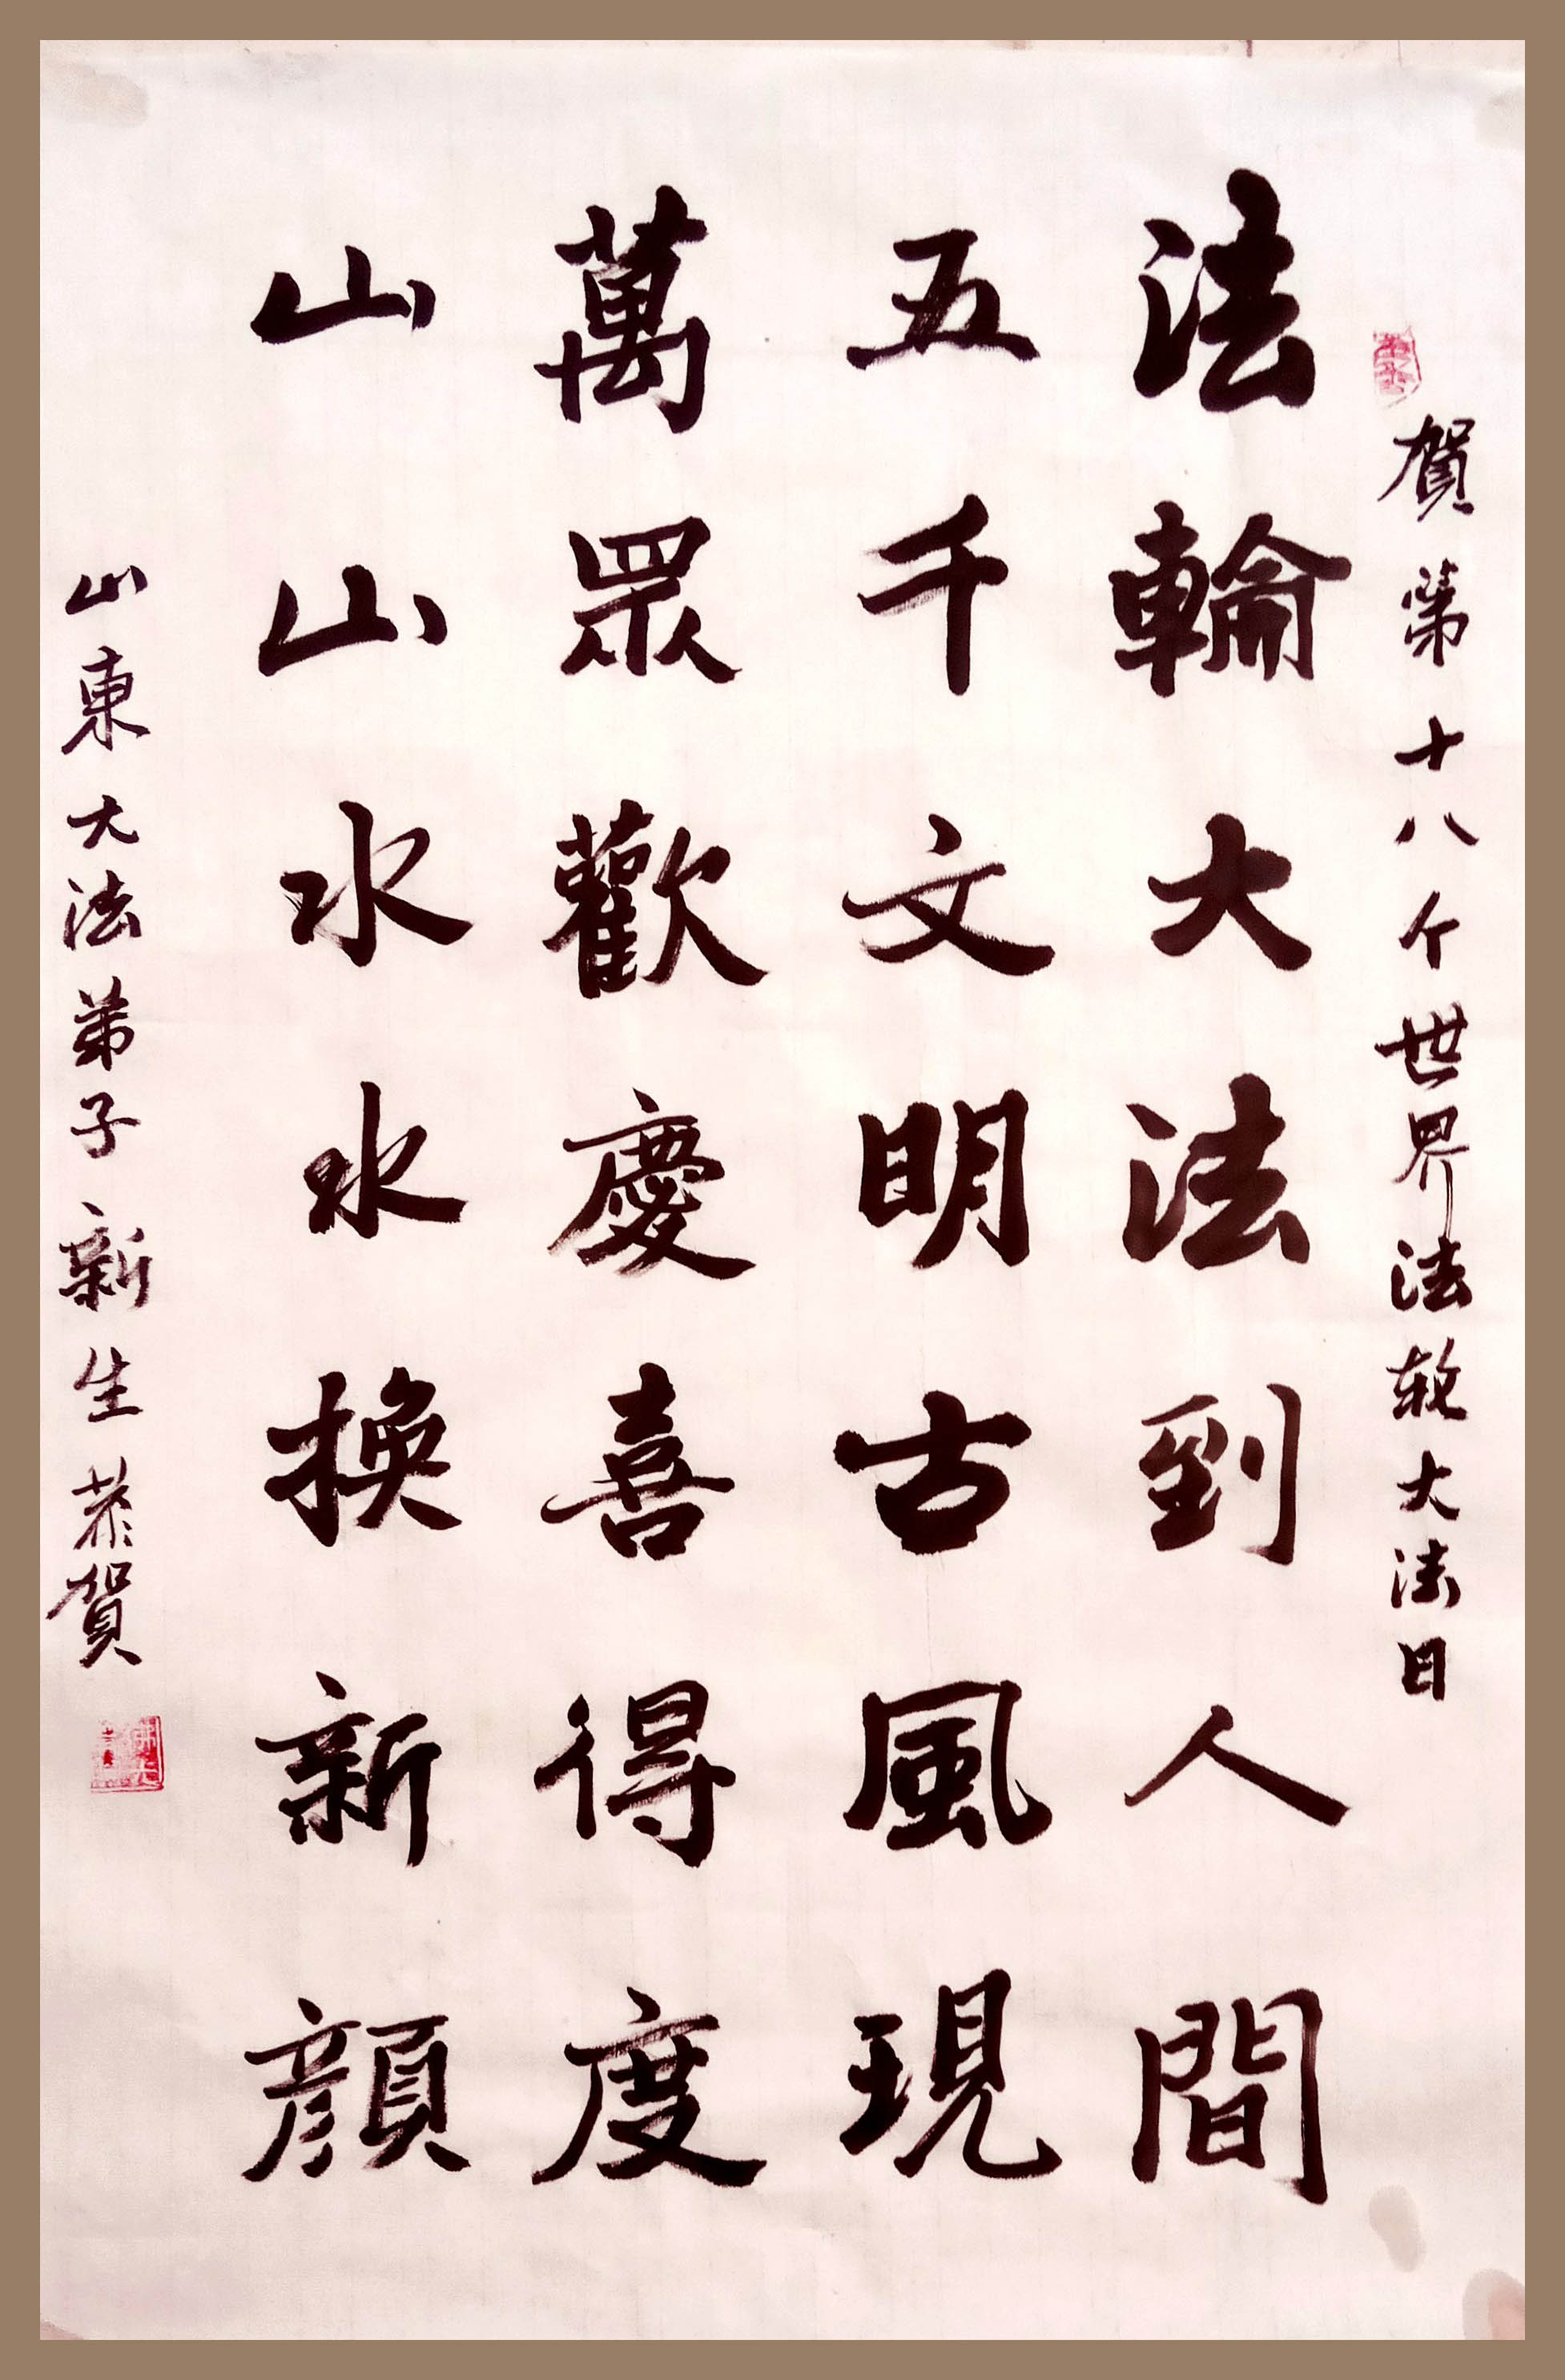 賀第十八个世界法轮大法日
法輪大法到人間
五千文明古風現
萬眾歡慶喜得度
山山水水換新顔
山東大法弟子新生恭賀